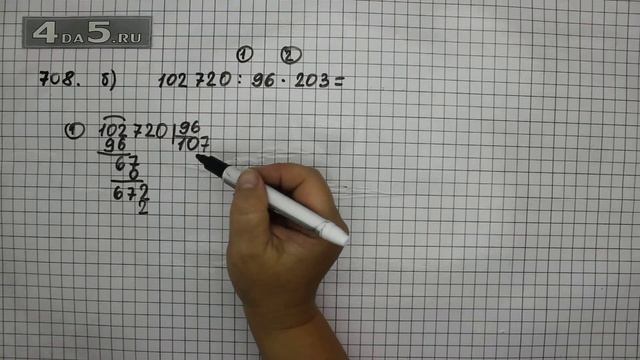 4DA5.RU
1 2
708. б) 102720 : 96 · 203 =
1 102720 96
96 107
67
0
672
2